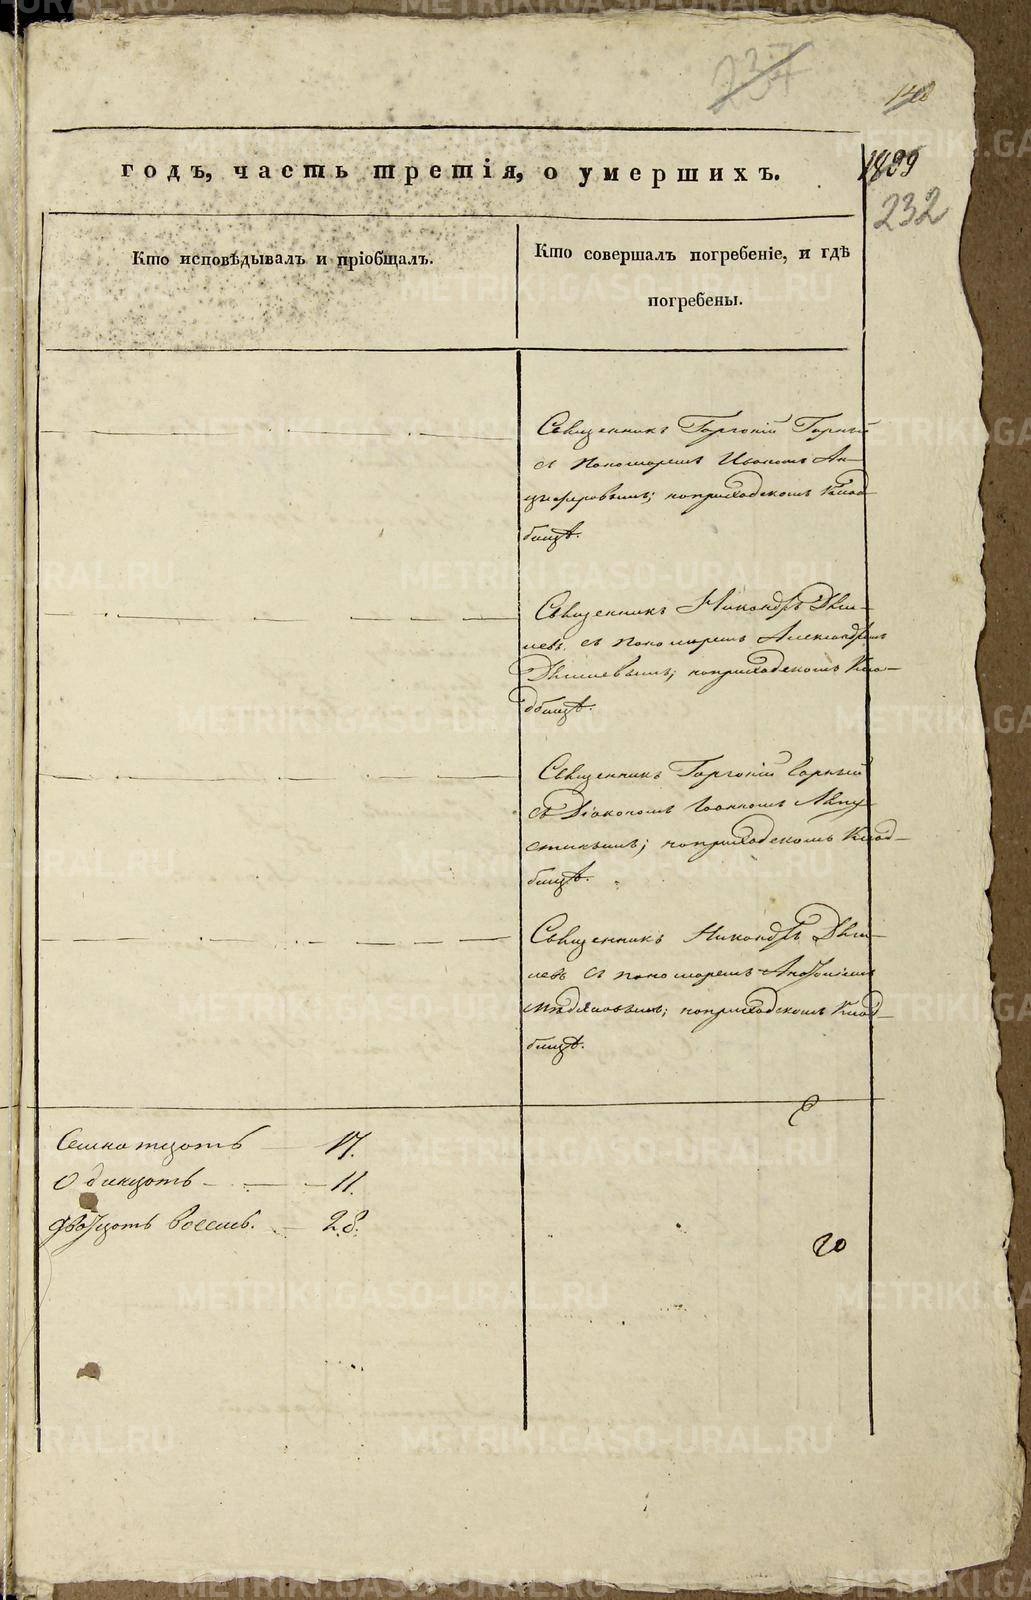 237
148
годъ, часть третія, о умершихъ.
1829
232
Кто исповѣдывалъ и пріобщалъ.
Кто совершалъ погребеніе, и гдѣ
погребены.
Священникъ Горгоній Горный
съ пономаремъ Иваномъ Ан-
циферовымъ; на приходскомъ клад-
бищѣ.
Священникъ Никандръ
съ пономаремъ Александромъ
на приходскомъ кла-
дбищѣ.
Священникъ Горгоній Горный
съ Діакономъ Іоанномъ
на приходскомъ клад-
бищѣ.
Священникъ Никандръ
съ пономаремъ
на приходскомъ клад-
бищѣ.
Семнатцать — 17.
Одинцать — 11.
Двадцать восемь. — 28.
METRIKI.GASO-URAL.RU